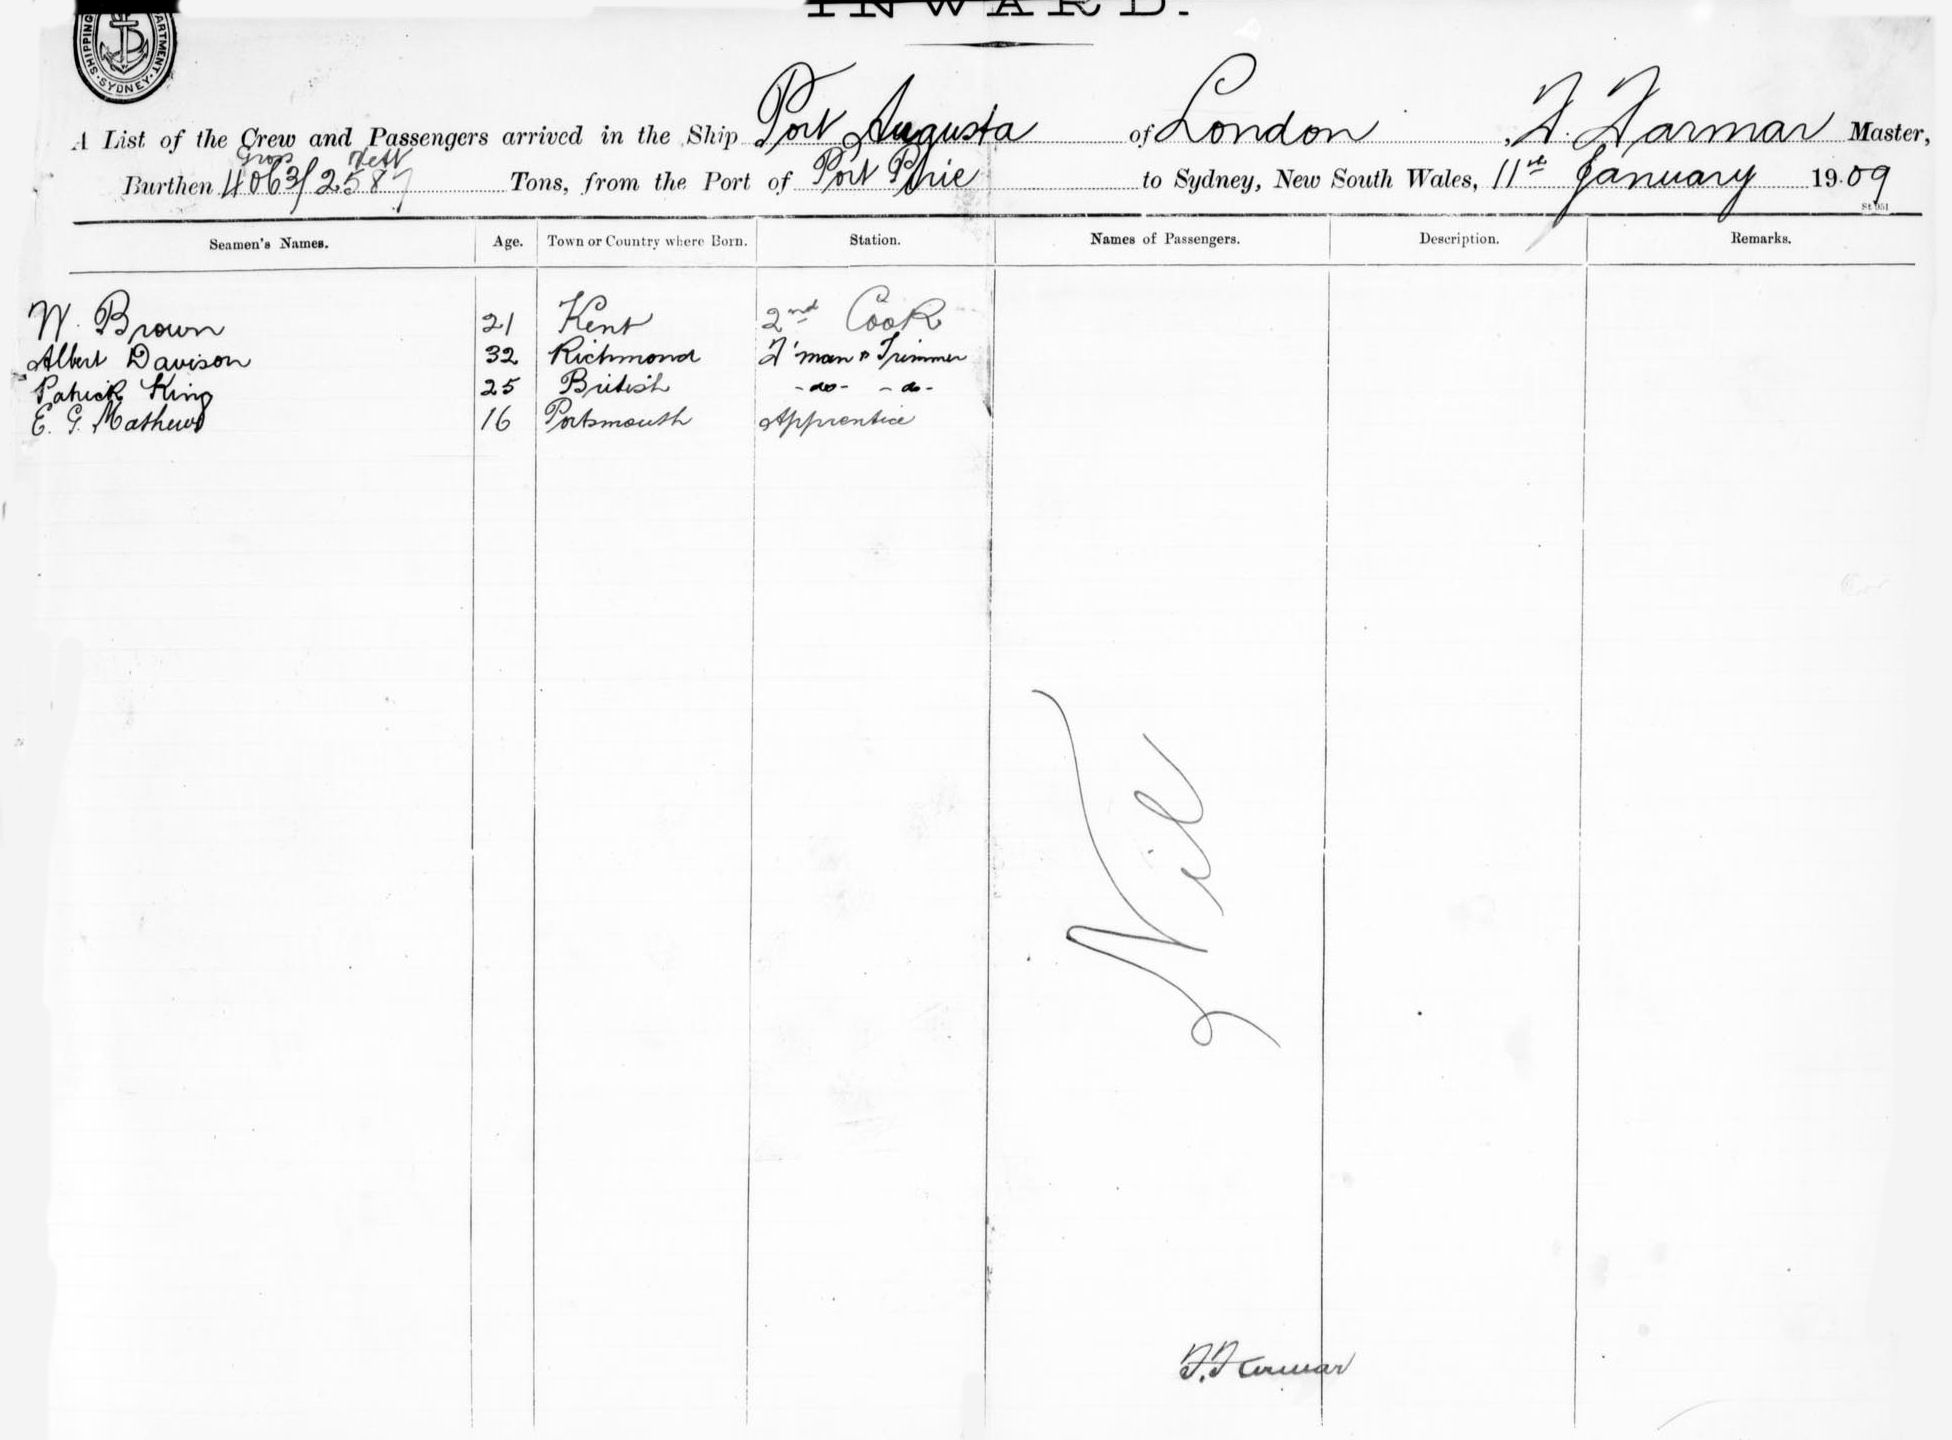 INWARD.
SHIPPING DEPARTMENT. SYDNEY.
A List of the Crew and Passengers arrived in the Ship Port Augusta of London, F. Farmar Master,
Gross Nett
Burthen 4063/2587 Tons, from the Port of Port Pirie to Sydney, New South Wales, 11th January 1909
St 951
Seamen's Names. Age. Town or Country where Born. Station. Names of Passengers. Description. Remarks.
W. Brown 21 Kent 2nd Cook
Albert Davison 32 Richmond F'man & Trimmer
Patrick King 25 British -do- -do-
E. G. Mathews 16 Portsmouth Apprentice
Nil
F. Farmar